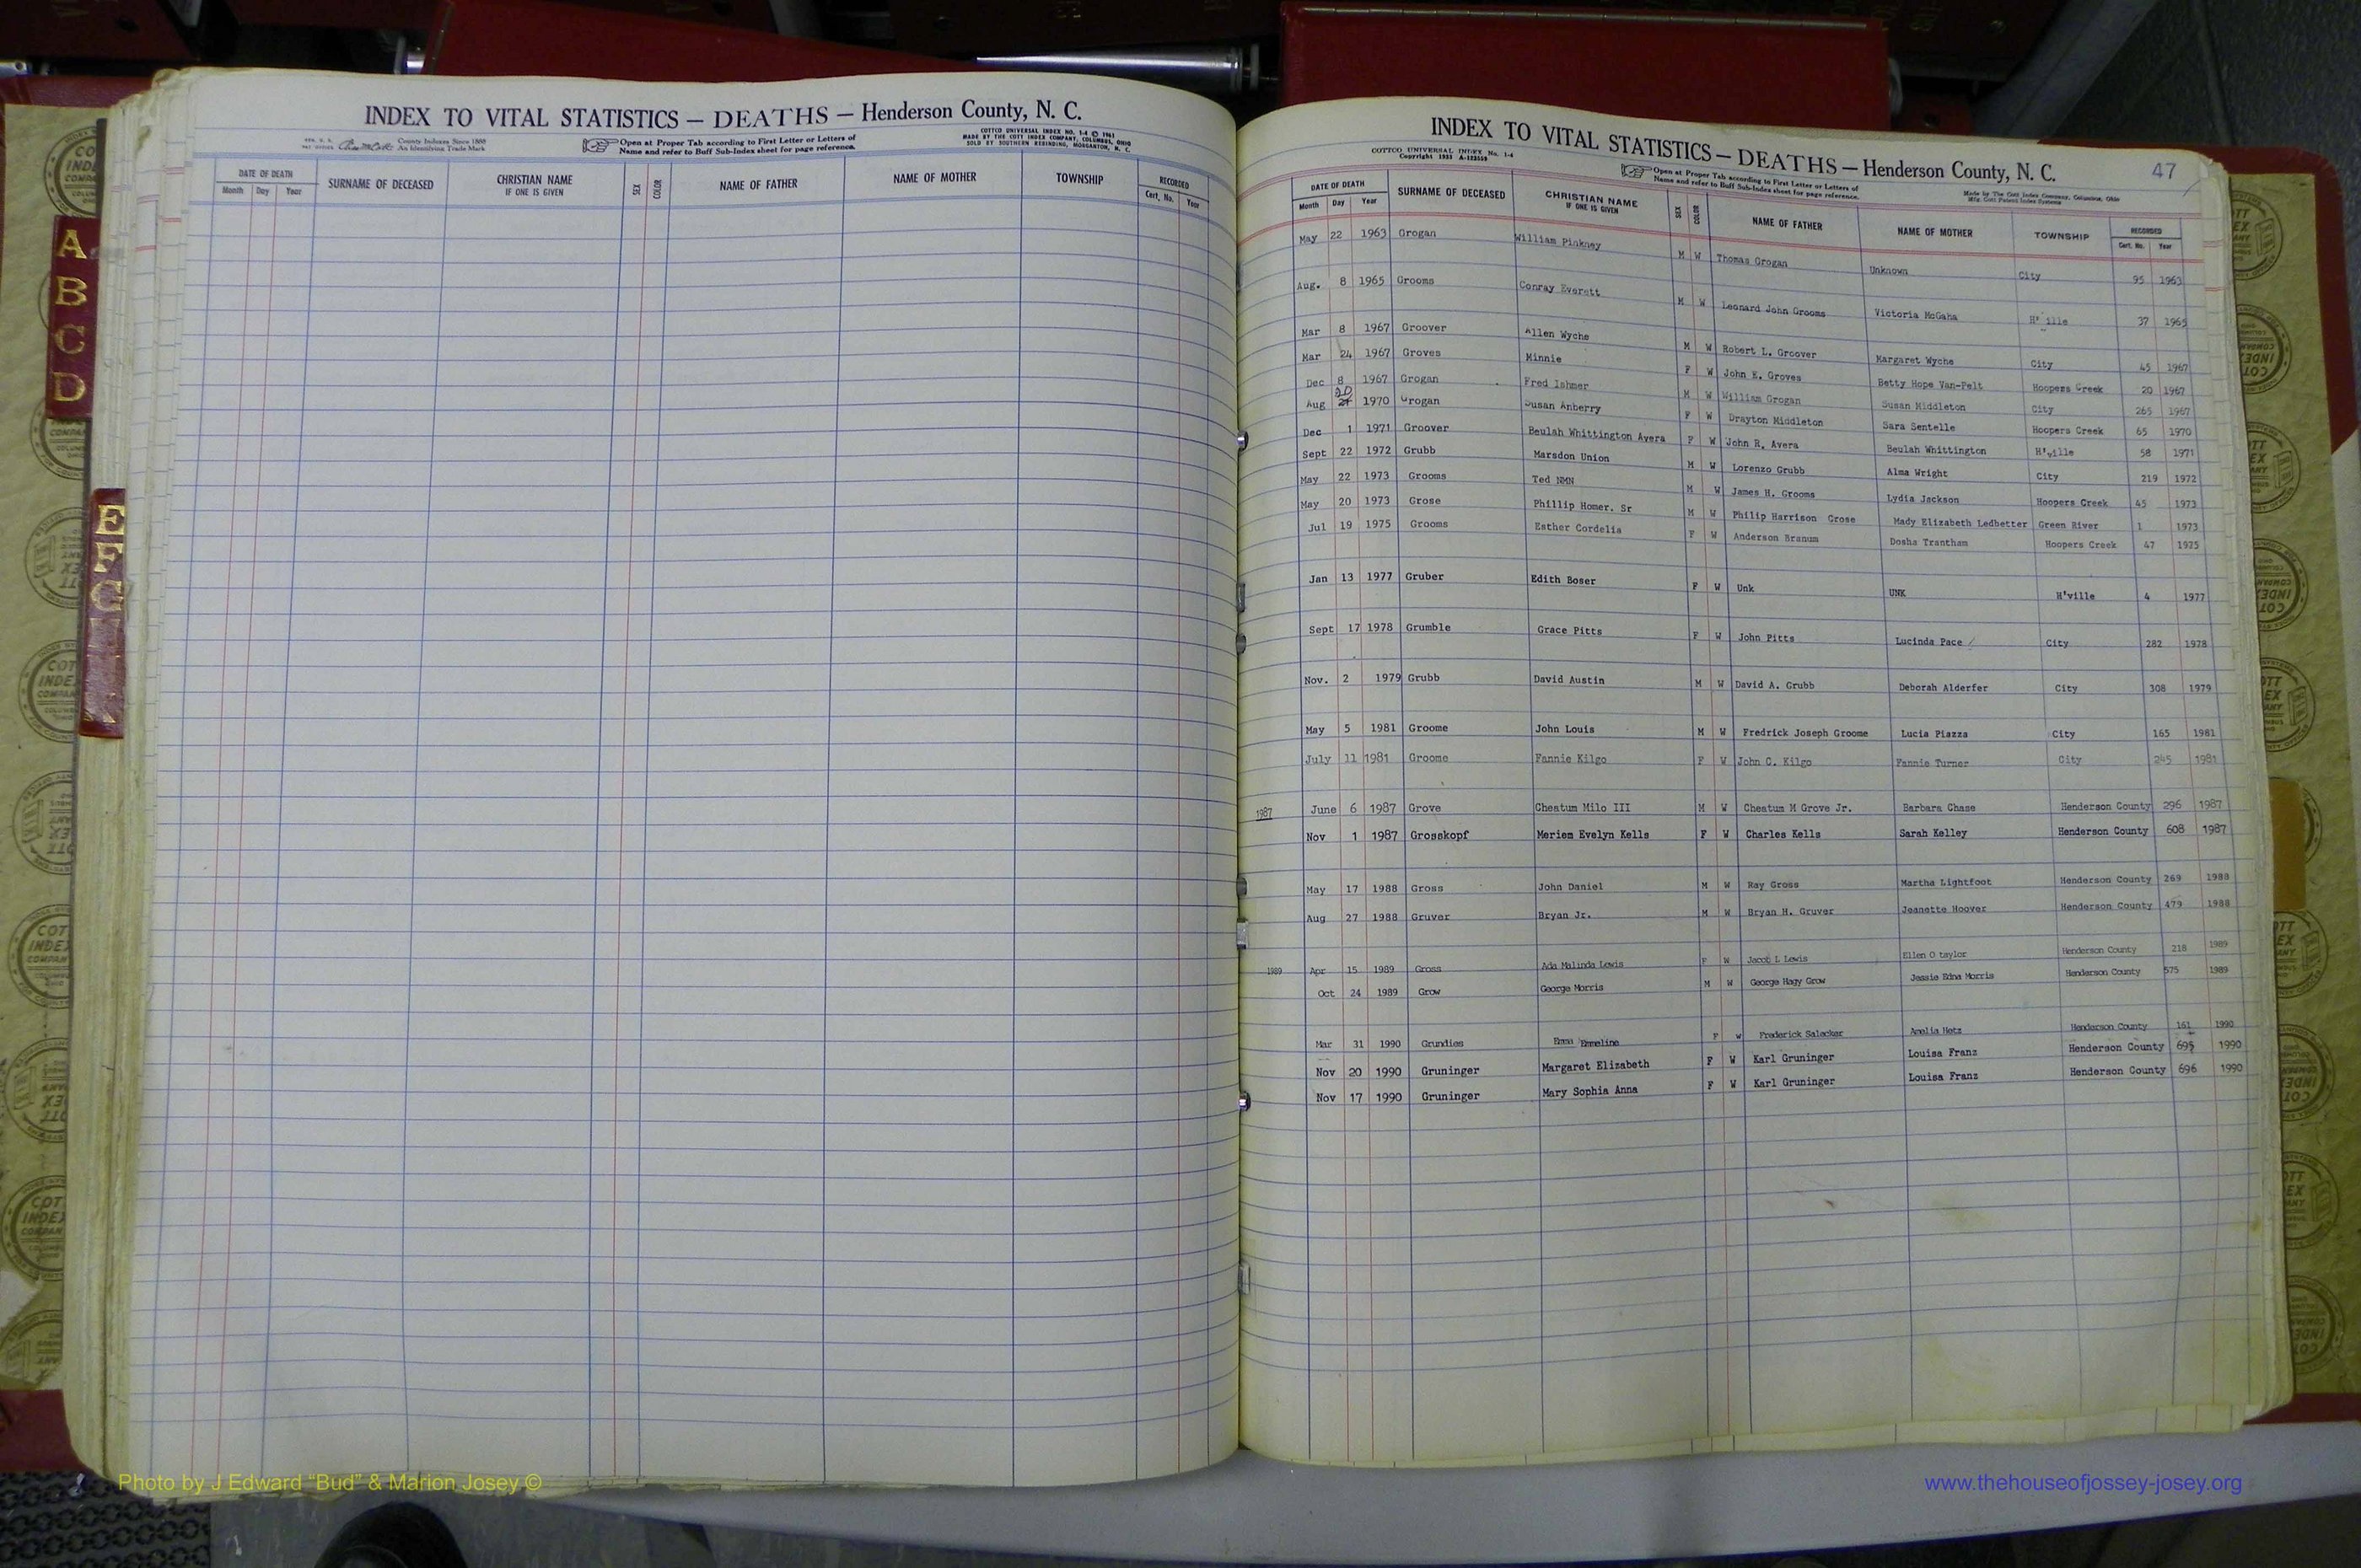 INDEX TO VITAL STATISTICS — DEATHS — Henderson County, N. C.
County Indexes Since 1888
An Identifying Trade Mark
Open at Proper Tab according to First Letter or Letters of
Name and refer to Buff Sub-Index sheet for page reference.
COTTCO UNIVERSAL INDEX NO. 1-4 © 1961
MADE BY THE COTT INDEX COMPANY, COLUMBUS, OHIO
SOLD BY SOUTHERN REBINDING, MORGANTON, N. C.
DATE OF DEATH Month Day Year SURNAME OF DECEASED CHRISTIAN NAME IF ONE IS GIVEN SEX COLOR NAME OF FATHER NAME OF MOTHER TOWNSHIP RECORDED Cert. No. Year
A
B
C
D
E
F
G
INDEX TO VITAL STATISTICS — DEATHS — Henderson County, N. C. 47
COTTCO UNIVERSAL INDEX No. 1-4
Open at Proper Tab according to First Letter or Letters of
Name and refer to Buff Sub-Index sheet for page reference.
Made by The Cott Index Company, Columbus, Ohio
DATE OF DEATH Month Day Year SURNAME OF DECEASED CHRISTIAN NAME IF ONE IS GIVEN SEX COLOR NAME OF FATHER NAME OF MOTHER TOWNSHIP RECORDED Cert. No. Year
May 22 1963 Grogan William Pinkney M W Thomas Grogan Unknown City 95 1963
Aug. 8 1965 Grooms Conray Everett M W Leonard John Grooms Victoria McGaha H'ville 37 1965
Mar 8 1967 Groover Allen Wyche M W Robert L. Groover Margaret Wyche City 45 1967
Mar 24 1967 Groves Minnie F W John E. Groves Betty Hope Van-Pelt Hoopers Creek 20 1967
Dec 8 1967 Grogan Fred Ishmer M W William Grogan Susan Middleton City 265 1967
Aug 20 1970 Grogan Susan Anberry F W Drayton Middleton Sara Sentelle Hoopers Creek 65 1970
Dec 1 1971 Groover Beulah Whittington Avera F W John R. Avera Beulah Whittington H'ville 58 1971
Sept 22 1972 Grubb Marsdon Union M W Lorenzo Grubb Alma Wright City 219 1972
May 22 1973 Grooms Ted NMN M W James H. Grooms Lydia Jackson Hoopers Creek 45 1973
May 20 1973 Grose Phillip Homer. Sr M W Philip Harrison Grose Mady Elizabeth Ledbetter Green River 1 1973
Jul 19 1975 Grooms Esther Cordelia F W Anderson Branum Dosha Trantham Hoopers Creek 47 1975
Jan 13 1977 Gruber Edith Boser F W Unk UNK H'ville 4 1977
Sept 17 1978 Grumble Grace Pitts F W John Pitts Lucinda Pace City 282 1978
Nov. 2 1979 Grubb David Austin M W David A. Grubb Deborah Alderfer City 308 1979
May 5 1981 Groome John Louis M W Fredrick Joseph Groome Lucia Piazza City 165 1981
July 11 1981 Groome Fannie Kilgo F W John C. Kilgo Fannie Turner City 245 1981
1987 June 6 1987 Grove Cheatum Milo III M W Cheatum M Grove Jr. Barbara Chase Henderson County 296 1987
Nov 1 1987 Grosskopf Meriem Evelyn Kells F W Charles Kells Sarah Kelley Henderson County 608 1987
May 17 1988 Gross John Daniel M W Ray Gross Martha Lightfoot Henderson County 269 1988
Aug 27 1988 Gruver Bryan Jr. M W Bryan H. Gruver Jeanette Hoover Henderson County 479 1988
1989 Apr 15 1989 Gross Ada Malinda Lewis F W Jacob L Lewis Ellen O taylor Henderson County 218 1989
Oct 24 1989 Grow George Morris M W George Hagy Grow Jessie Edna Morris Henderson County 575 1989
Mar 31 1990 Grundies Emma Emmeline F W Frederick Salecker Amelia Hetz Henderson County 161 1990
Nov 20 1990 Gruninger Margaret Elizabeth F W Karl Gruninger Louisa Franz Henderson County 695 1990
Nov 17 1990 Gruninger Mary Sophia Anna F W Karl Gruninger Louisa Franz Henderson County 696 1990
Photo by J Edward “Bud” & Marion Josey ©
www.thehouseofjossey-josey.org